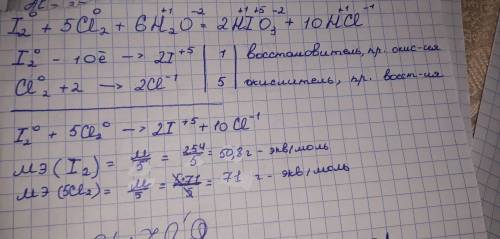 I₂⁰ + 5Cl₂⁰ + 6H₂⁺¹O⁻² = 2H⁺¹I⁺⁵O₃⁻² + 10H⁺¹Cl⁻¹
I₂⁰ - 10ē → 2I⁺⁵ | 1 | восстановитель, пр. окис-ия
Cl₂⁰ + 2 → 2Cl⁻¹ | 5 | окислитель, пр. восст-ия
I₂⁰ + 5Cl₂⁰ → 2I⁺⁵ + 10Cl⁻¹
МЭ(I₂) = М/5 = 254/5 = 50,8 г - экв/моль
МЭ(5Cl₂) = М/5 = 5·71/5 = 71 г - экв/моль